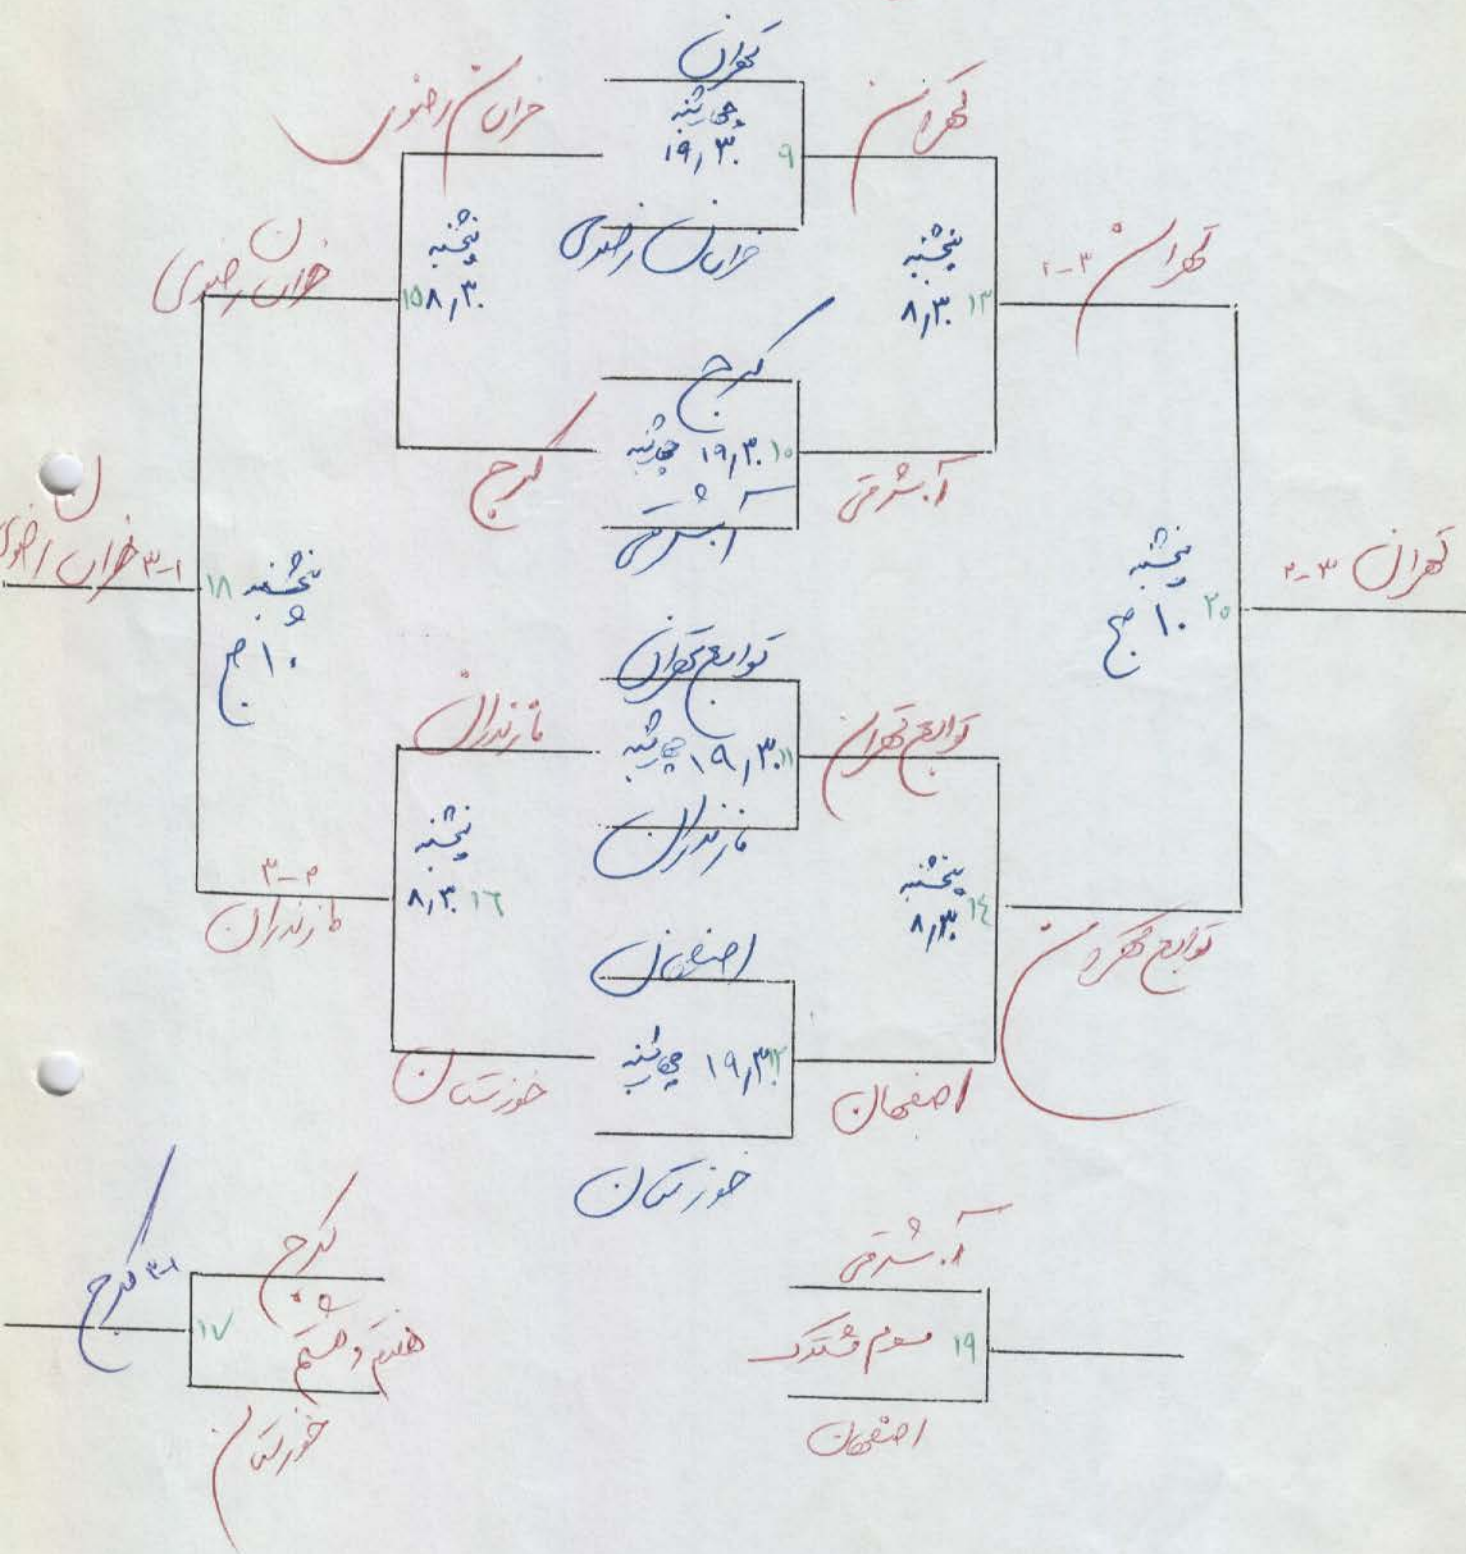 تهران
چهارشنبه
۱۹,۳۰
۹
خراسان رضوی
خراسان رضوی
تهران
پنجشنبه
۱۵ ۸,۳۰
پنجشنبه
۸,۳۰ ۱۳
خراسان رضوی
تهران ۳-۲
کرج
چهارشنبه ۱۹,۳۰ ۱۰
آ.شرقی
کرج
آ.شرقی
۳-۱ خراسان رضوی
۱۸ پنجشنبه
۱۰ صبح
پنجشنبه
۱۰ صبح ۲۰
تهران ۳-۲
توابع تهران
چهارشنبه ۱۹,۳۰ ۱۱
مازندران
مازندران
توابع تهران
پنجشنبه
۸,۳۰ ۱۶
پنجشنبه
۸,۳۰ ۱۴
۳-۲
مازندران
توابع تهران
اصفهان
چهارشنبه ۱۹,۳۰ ۱۲
خوزستان
خوزستان
اصفهان
کرج
۳-۱ کرج
۱۷
هفتم و هشتم
خوزستان
آ.شرقی
سوم مشترک ۱۹
اصفهان